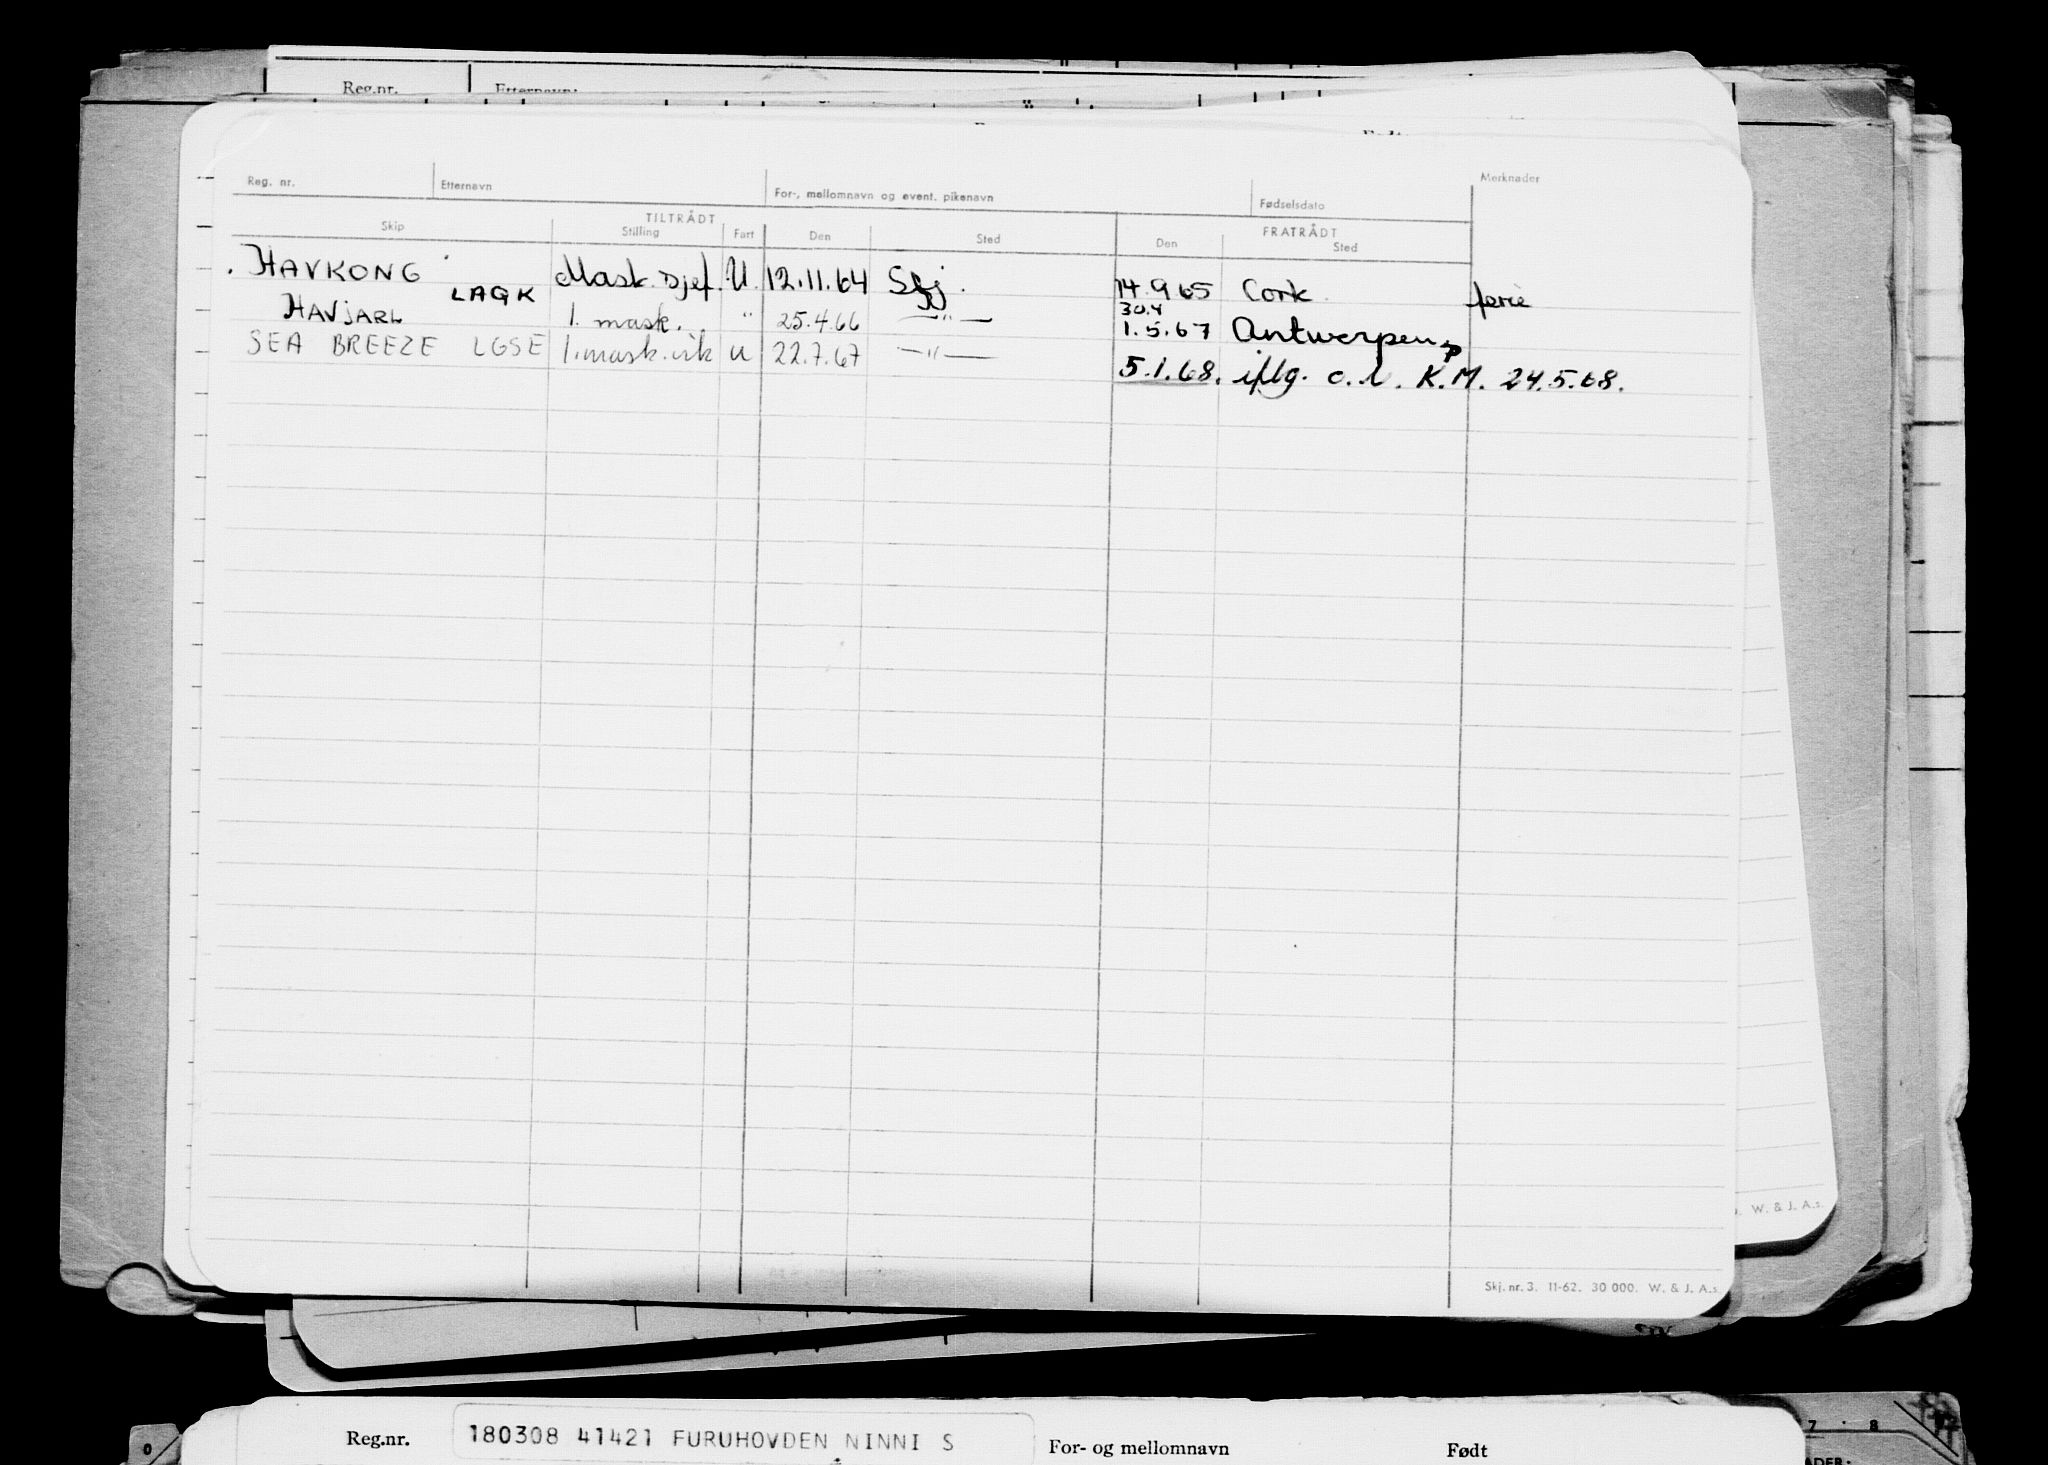 Reg.nr. Etternavn:
Reg. nr. Etternavn For-, mellomnavn og event. pikenavn Fødselsdato Merknader
TILTRÅDT FRATRÅDT
Skip Stilling Fart Den Sted Den Sted
HAVKONG Mask. sjef. U. 12.11.64 Sfj. 14.9 65 Cork ferie
LAGK
HAVJARL 1. mask. " 25.4.66 —"— 30.4 1.5.67 Antwerpen
SEA BREEZE LGSE 1. mask. vik u 22.7.67 —"—
5.1.68. iflg. o.l. K.M. 24.5.68.
W. & J. A.s.
Skj. nr. 3. 11-62. 30 000. W. & J. A.s.
Reg.nr. 180308 41421 FURUHOVDEN NINNI S For- og mellomnavn Født
0 7 · 8